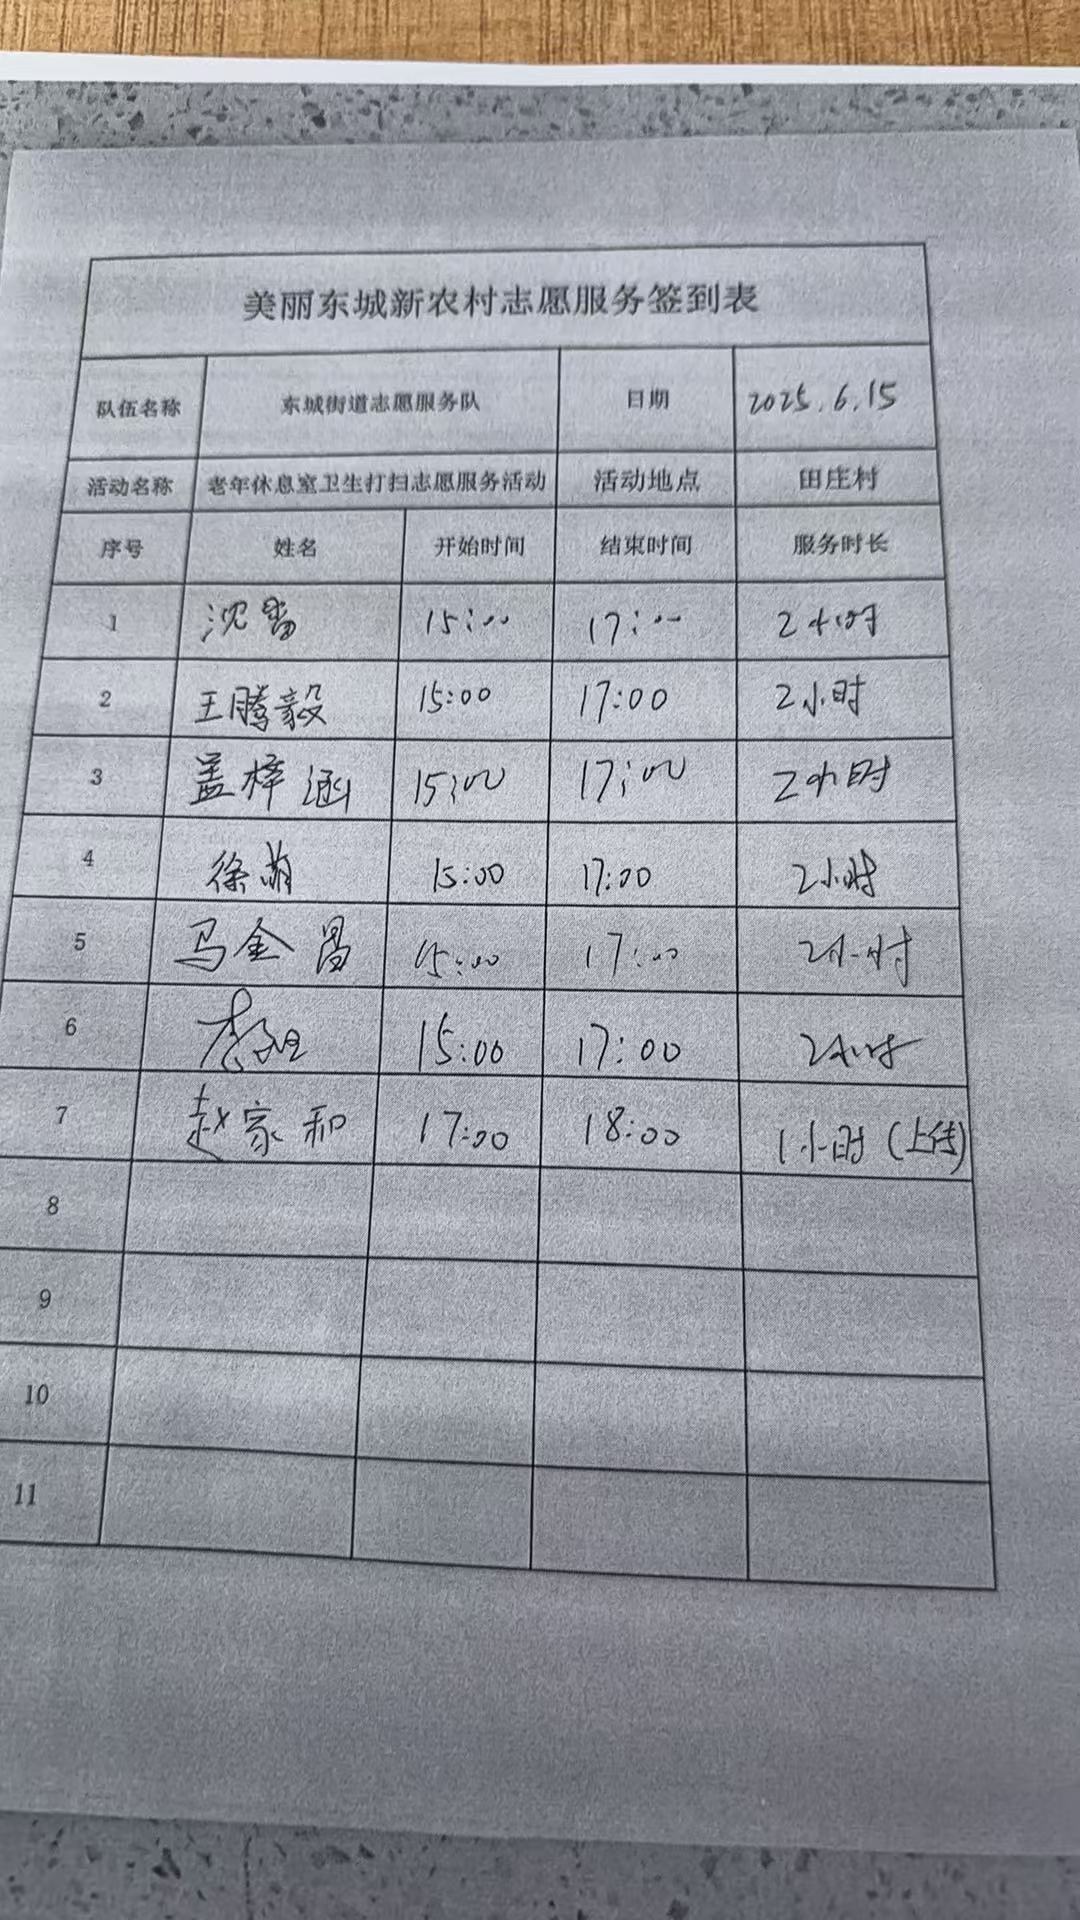 美丽东城新农村志愿服务签到表
队伍名称 东城街道志愿服务队 日期 2025.6.15
活动名称 老年休息室卫生打扫志愿服务活动 活动地点 田庄村
序号 姓名 开始时间 结束时间 服务时长
1 沈 15:00 17:00 2小时
2 王腾毅 15:00 17:00 2小时
3 盖梓涵 15:00 17:00 2小时
4 徐萌 15:00 17:00 2小时
5 马金昌 15:00 17:00 2小时
6 李 15:00 17:00 2小时
7 赵家和 17:00 18:00 1小时(上传)
8
9
10
11